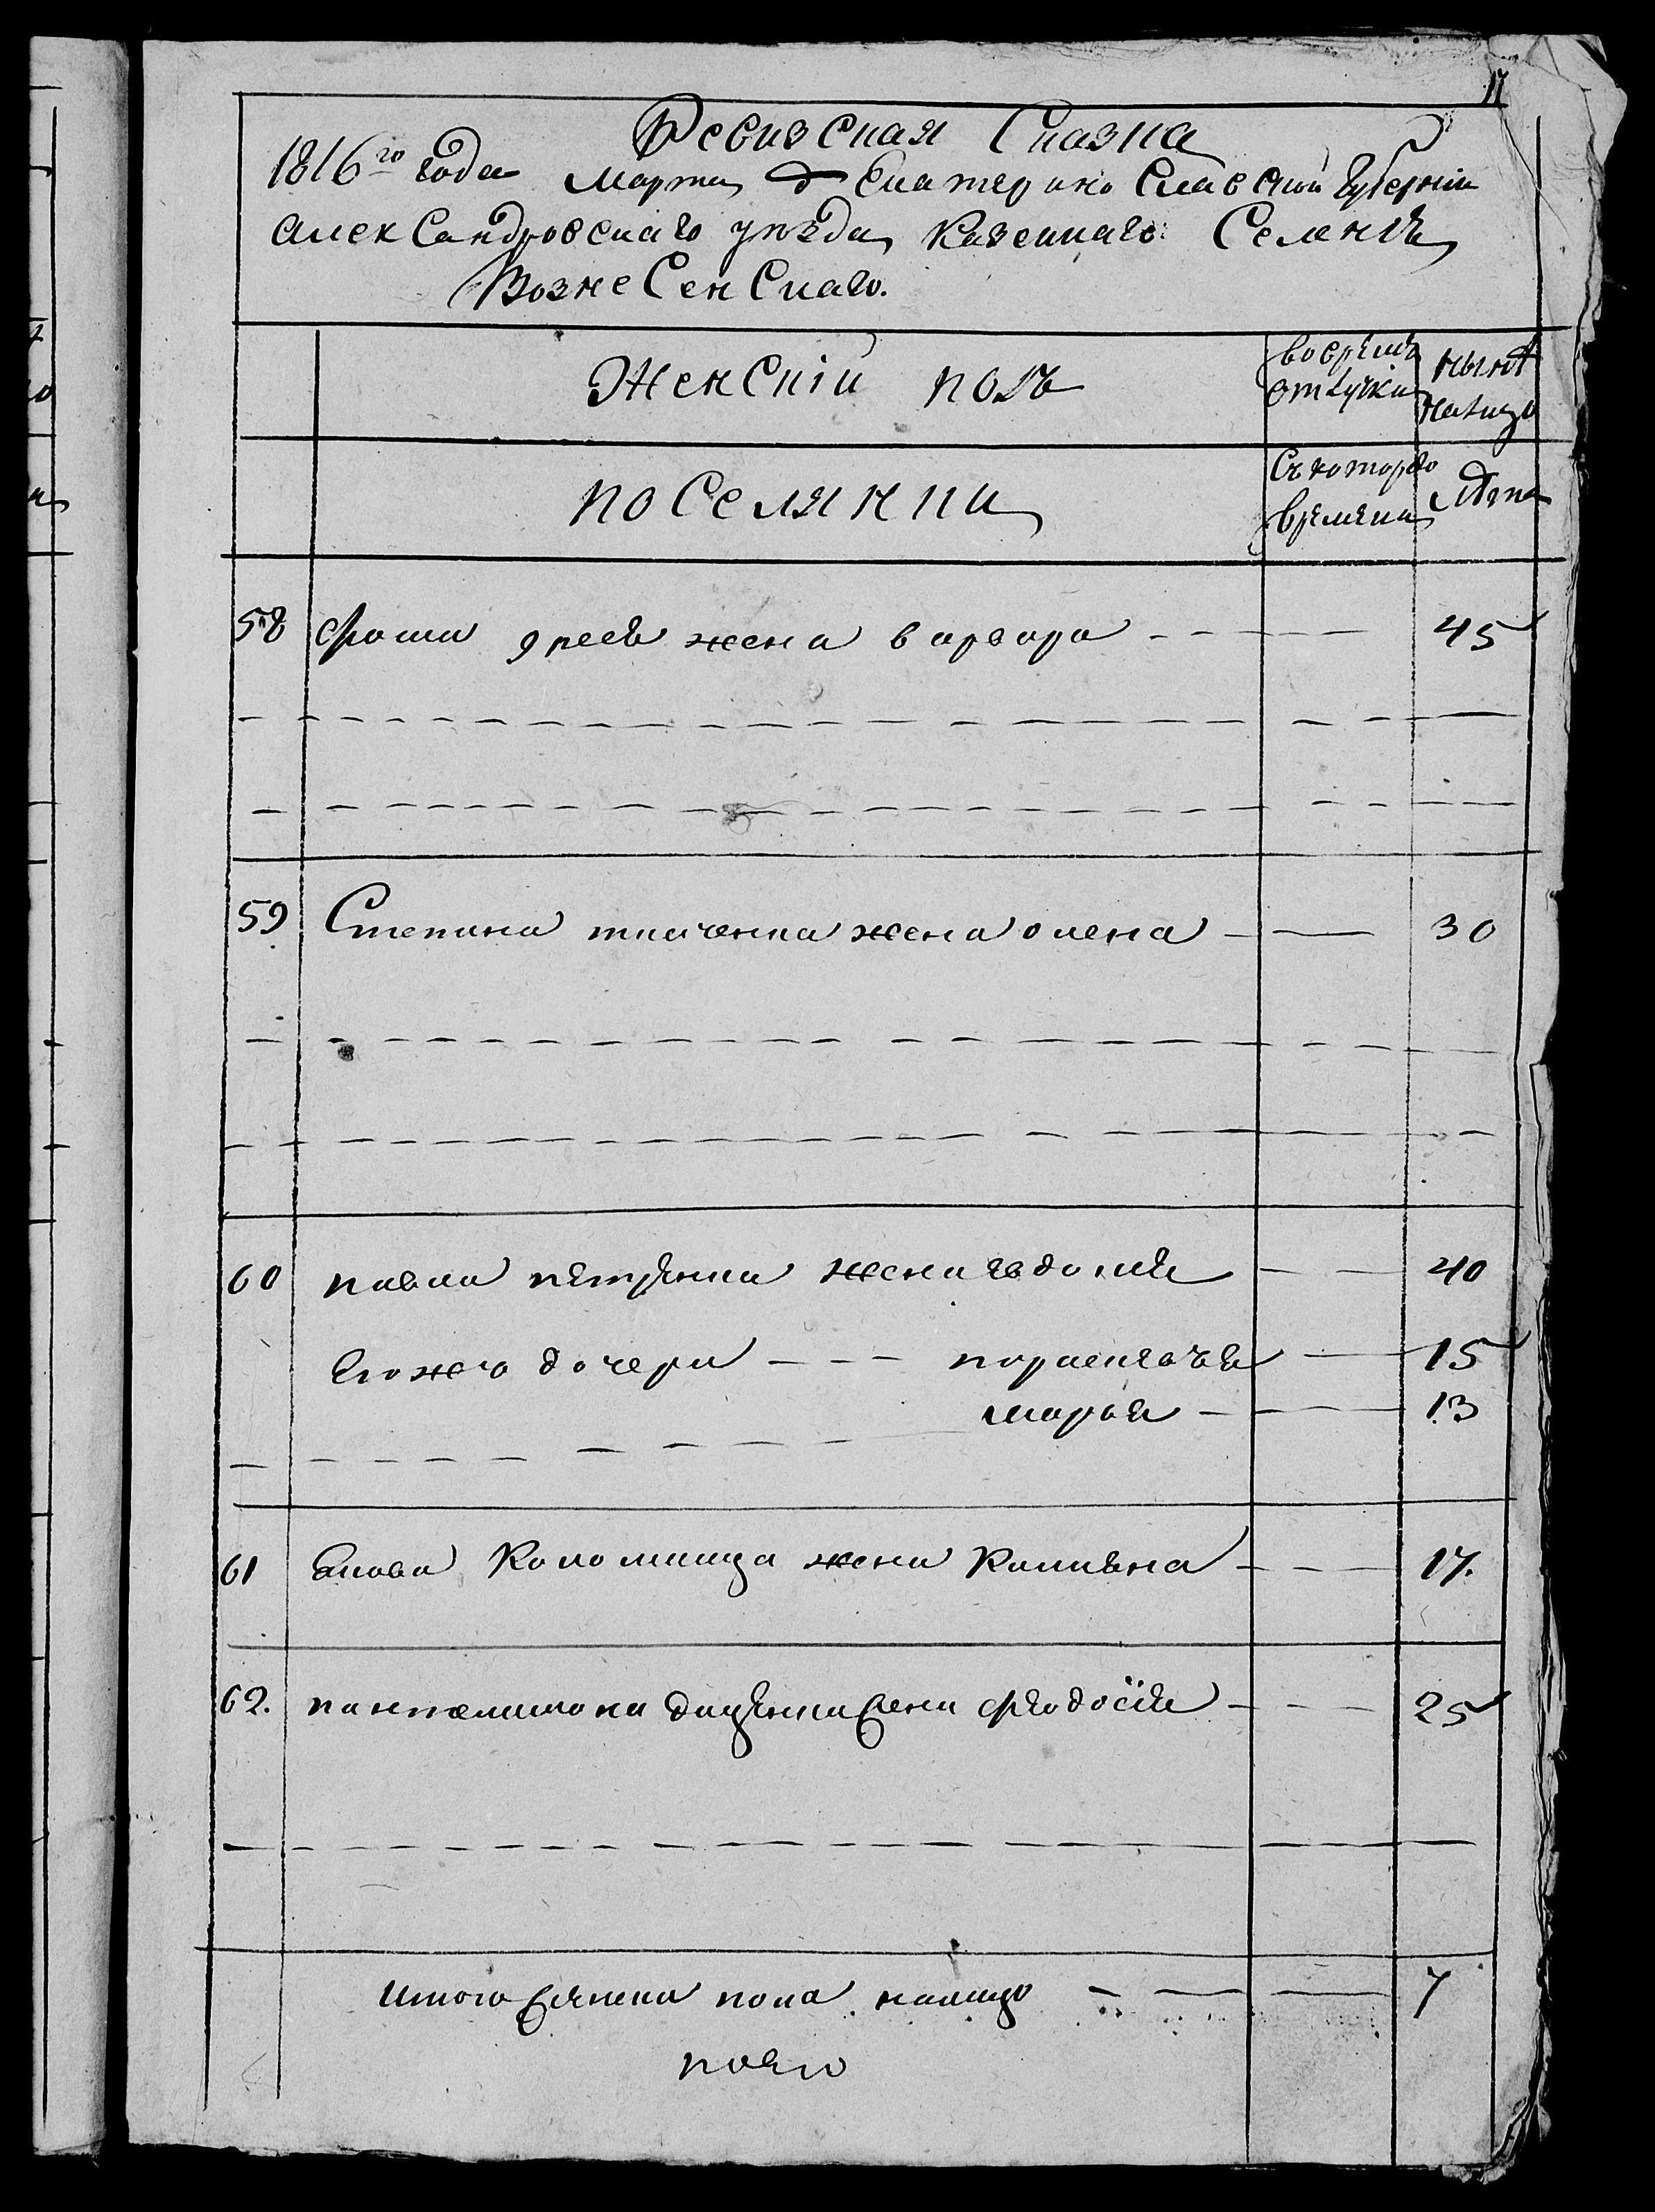 17
Ревизская Сказка
1816го года Марта д Екатерино Славской Губерніи
алек Сандровскаго уѣзда Казеннаго Селенія
Возне Сен Скаго.
Женскій полъ
во время отлучки
ныне налицо
поселянки
Съ которго времени
Лѣта
58 жена варвара 45
59 Степана ткаченка жена олена 30
60 павла петренка жена евдокия 40
Его жъ дочери параскевея 15
марья 13
61 Якова Коломийца жена 17.
62. пантелимона жена феодосія 25
Итого женска пола налицо 7